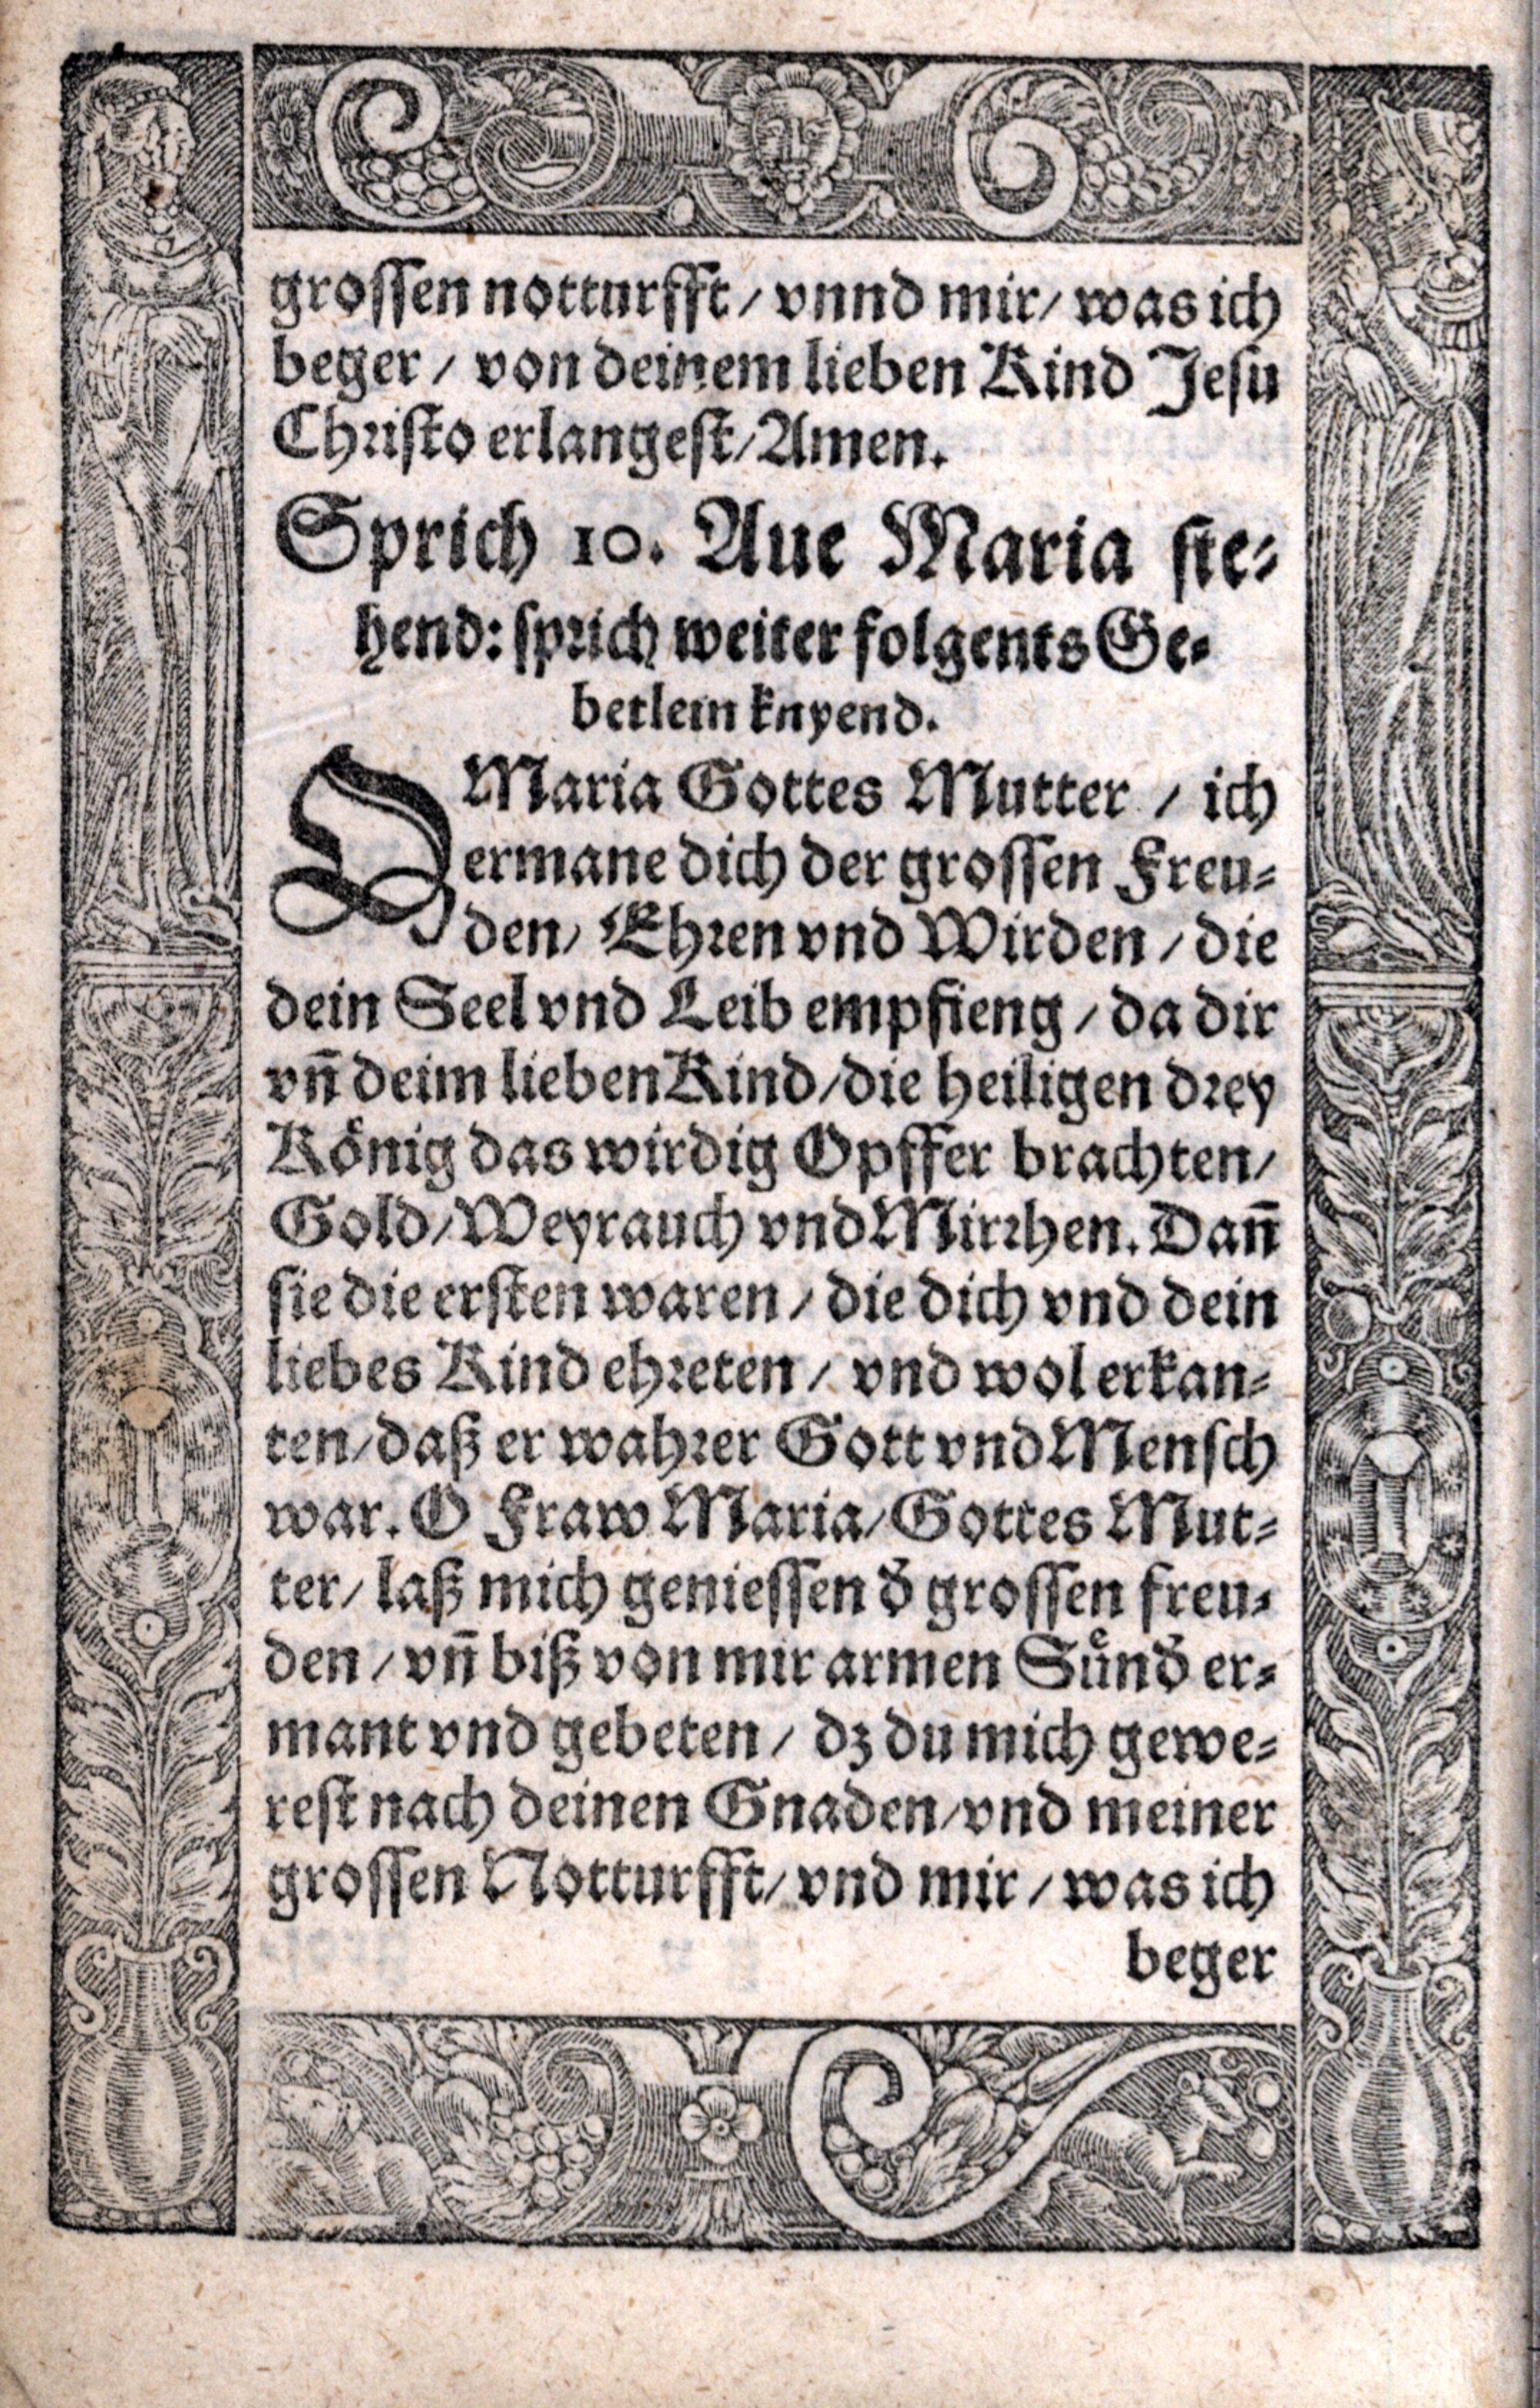 grossen notturfft / vnnd mir / was ich
beger / von deinem lieben Kind Jesu
Christo erlangest / Amen.
Sprich 10. Aue Maria ste-
hend: sprich weiter folgents Ge-
betlein knyend.
O Maria Gottes Mutter / ich
ermane dich der grossen Freu-
den / Ehren vnd Wirden / die
dein Seel vnd Leib empfieng / da dir
vn̄ deim lieben Kind / die heiligen drey
Koͤnig das wirdig Opffer brachten /
Gold / Weyrauch vnd Mirrhen. Dan̄
sie die ersten waren / die dich vnd dein
liebes Kind ehreten / vnd wol erkan-
ten / daß er wahrer Gott vnd Mensch
war. O Fraw Maria / Gottes Mut-
ter / laß mich geniessen d̕ grossen freu-
den / vn̄ biß von mir armen Suͤnd̕ er-
mant vnd gebeten / dz du mich gewe-
rest nach deinen Gnaden / vnd meiner
grossen Notturfft / vnd mir / was ich
beger